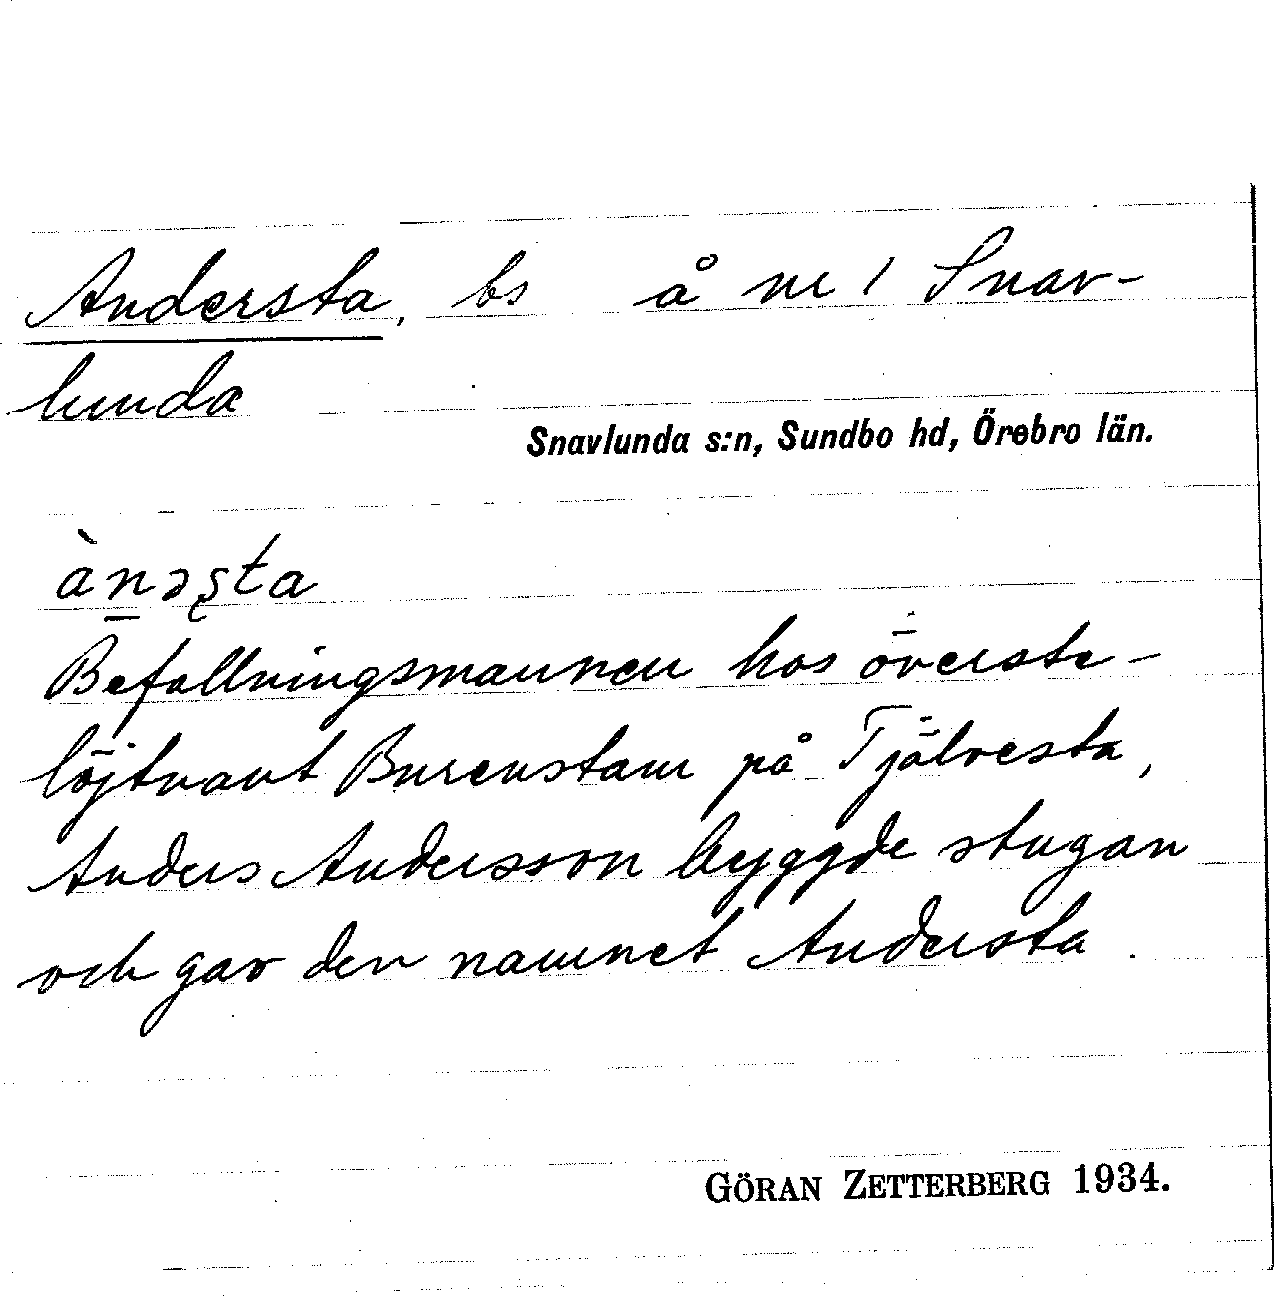 Andersta, bs å nr 1 Snav-
lunda
Snavlunda s:n, Sundbo hd, Örebro län.
àn̲əʂta
Befallningsmannen hos överste-
löjtnant Burenstam på Tjälvesta,
Anders Andersson byggde stugan
och gav den namnet Andersta.
GÖRAN ZETTERBERG 1934.